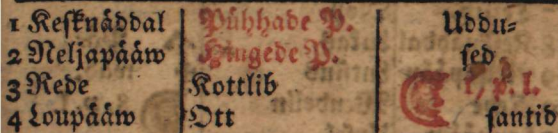 1 Kesknäddal Pühhade P. Uddu-
2 Neljapääw Hingede P. sed
3 Rede Kottlib
4 Loupääw Ott santid